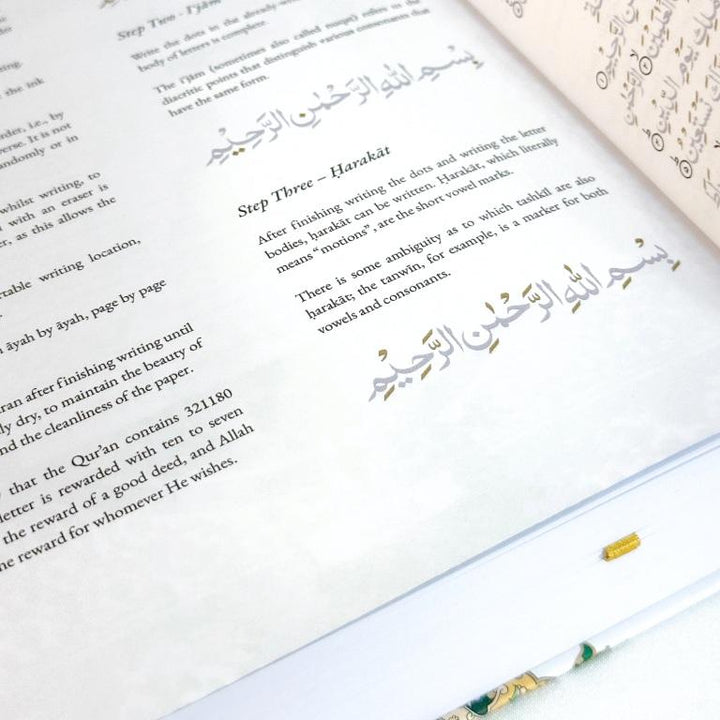 nning.
the ink
order, i.e., by
verse. It is not
andomly or in
whilst writing, to
with an eraser is
as this allows the
table writing location,
āyah by āyah, page by page
ran after finishing writing until
ly dry, to maintain the beauty of
nd the cleanliness of the paper.
that the Qur'an contains 321180
letter is rewarded with ten to seven
the reward of a good deed, and Allah
he reward for whomever He wishes.
Step Two - I'jām
Write the dots in the already-
body of letters is complete.
The i'jām (sometimes also called nuqaṭ) refers to the
diacritic points that distinguish various consonants that
have the same form.
بِسْمِ اللهِ الرَّحْمٰنِ الرَّحِيْمِ
Step Three – Ḥarakāt
After finishing writing the dots and writing the letter
bodies, ḥarakāt can be written. Ḥarakāt, which literally
means “motions”, are the short vowel marks.
There is some ambiguity as to which tashkīl are also
ḥarakāt; the tanwīn, for example, is a marker for both
vowels and consonants.
بِسْمِ اللهِ الرَّحْمٰنِ الرَّحِيْمِ
يَوْمِ الدِّيْنِ
نَسْتَعِيْنُ